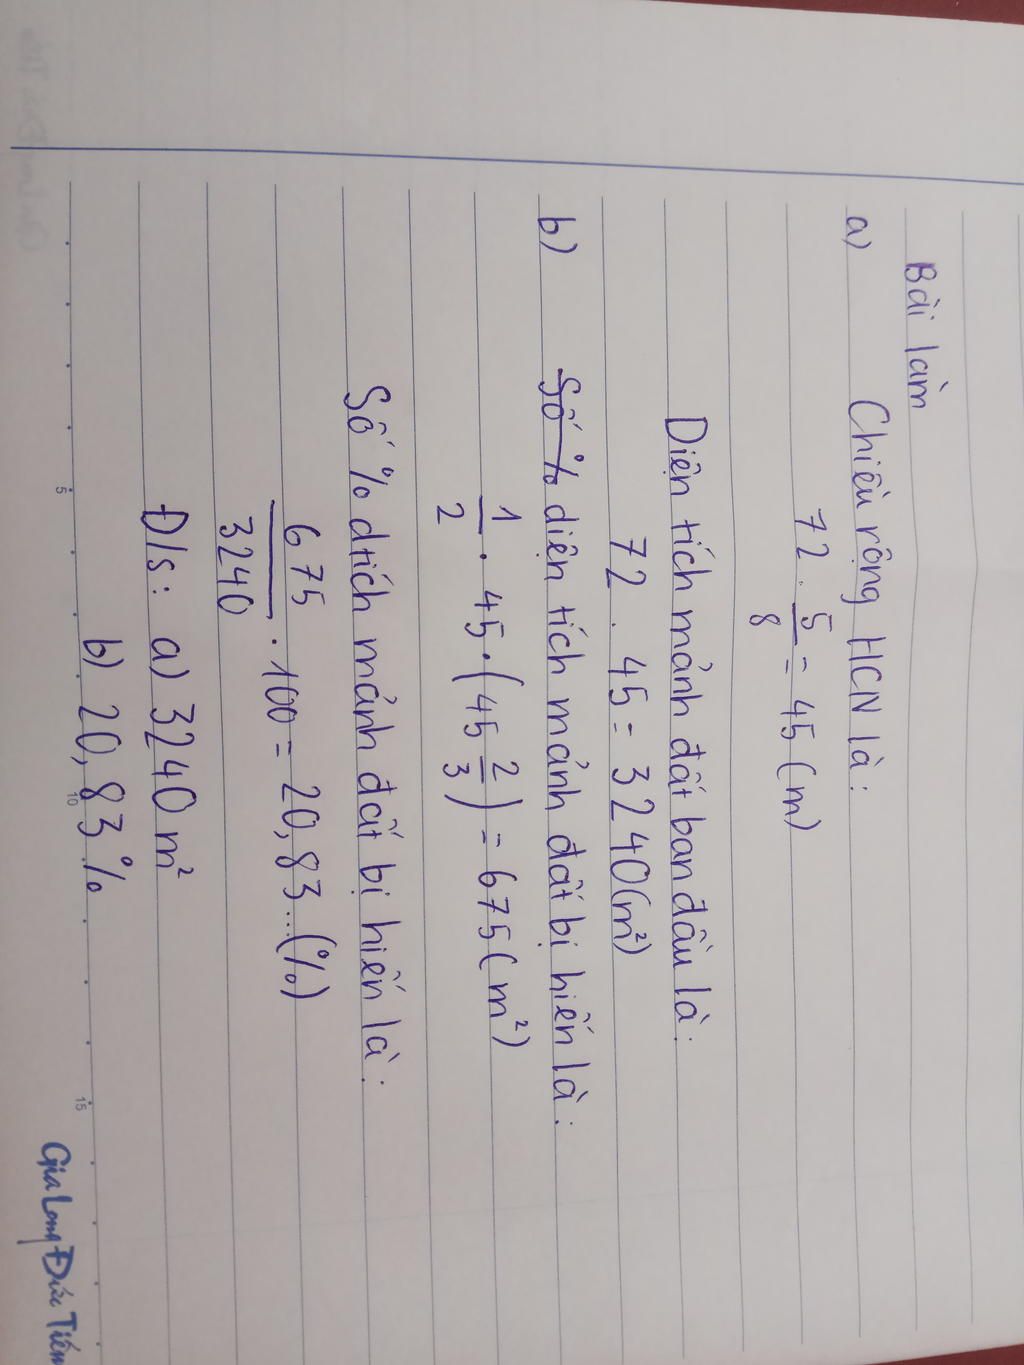 Bài làm
a) Chiều rộng HCN là:
72 . 5/8 = 45 (m)
Diện tích mảnh đất ban đầu là:
72 . 45 = 3240 (m²)
b) Số % diện tích mảnh đất bị hiến là:
1/2 . 45 . (45 2/3) = 675 (m²)
Số % dtích mảnh đất bị hiến là:
675/3240 . 100 = 20,83... (%)
Đ/s: a) 3240 m²
b) 20,83%
5 10 15
Gia Long Đức Tiến